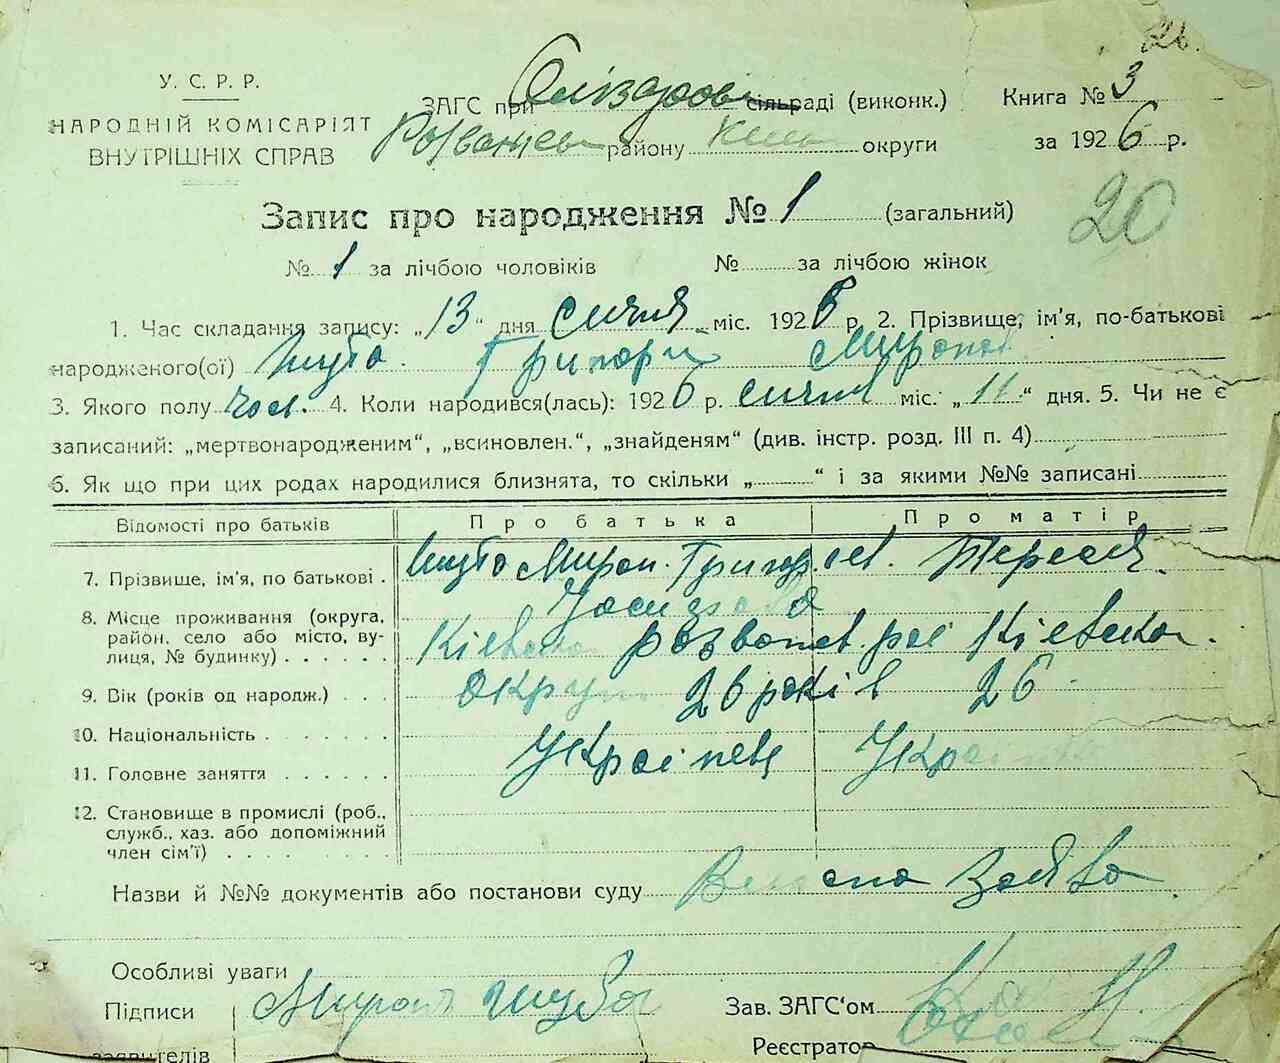 У. С. Р. Р.
НАРОДНІЙ КОМІСАРІЯТ
ВНУТРІШНІХ СПРАВ
ЗАГС при сільраді (виконк.) Книга № 3
району округи за 1926 р.
Запис про народження № 1 (загальний)
20
№ 1 за лічбою чоловіків № за лічбою жінок
1. Час складання запису: „13“ дня січня міс. 1926 р. 2. Прізвище, ім'я, по-батькові
народженого(ої) Григорій Миронов
3. Якого полу чол. 4. Коли народився(лась): 1926 р. січня міс. „11“ дня. 5. Чи не є
записаний: „мертвонародженим“, „всиновлен.“, „знайденям“ (див. інстр. розд. III п. 4)
6. Як що при цих родах народилися близнята, то скільки „ “ і за якими №№ записані
Відомості про батьків Про батька Про матір
7. Прізвище, ім'я, по батькові . Мирон Григор.
8. Місце проживання (округа,
район, село або місто, ву-
лиця, № будинку)
9. Вік (років од народж.) 26 років 26
10. Національність Українець
11. Головне заняття
12. Становище в промислі (роб.,
служб., хаз. або допоміжний
член сім'ї)
Назви й №№ документів або постанови суду заява
Особливі уваги
Підписи Мирон Зав. ЗАГС'ом
заявителів Реєстратор